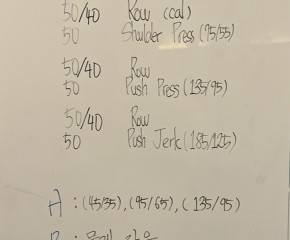 50/40 Row (cal)
50 Shoulder Press (75/55)
50/40 Row
50 Push Press (135/95)
50/40 Row
50 Push Jerk (185/125)
A : (45/35), (95/65), (135/95)